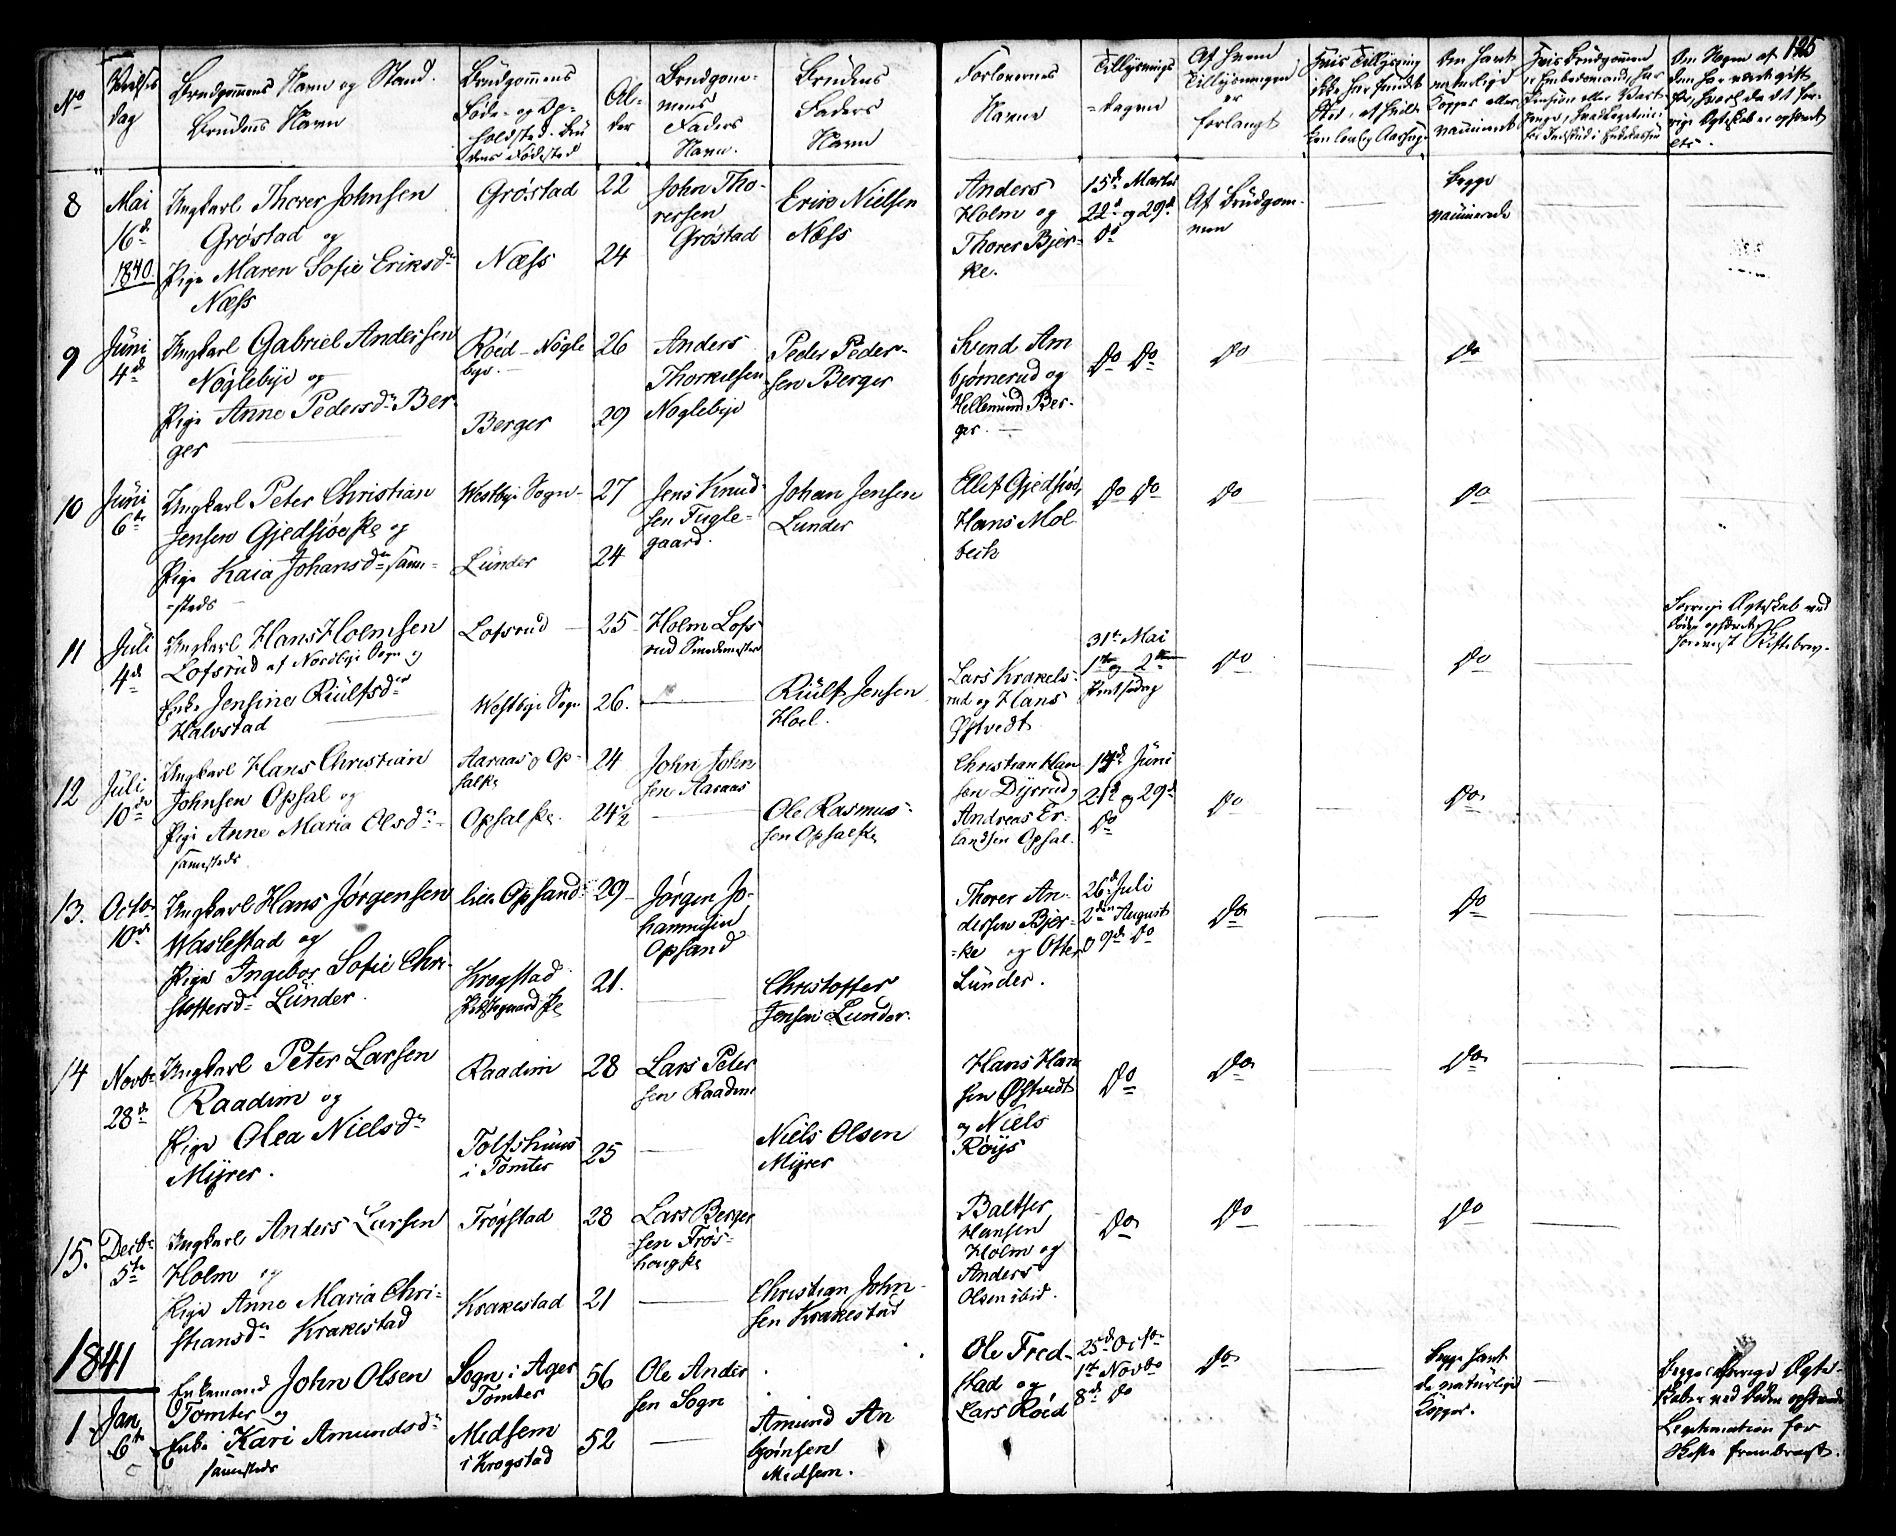 125
No
Vielses dag
Brudgommens Navn og Stand. Brudens Navn
Brudgommens Føde- og Opholdsted. Brudens Fødested
Alder
Brudgommens Faders Navn.
Brudens Faders Navn
Forlovernes Navne
Tillysnings-dagene
Af hvem Tillysningen er forlangt
8
Mai 16de 1840.
Ungkarl Thorer Johnsen
Grøstad og
Pige Maren Sofie Eriksdr
Næss
Grøstad
Næss
22
24
John Thorersen Grøstad
Erik Nielsen Næss
Anders Holm og Thorer Bjerke.
15de Marts 22de og 29de Do
Af Brudgommen
Begge vaccinerede
9
Juni 4de
Ungkarl Gabriel Andersen
Nøglebye og
Pige Anne Pedersdr Ber-
ger
Røed - Nøglebye.
Berger
26
29
Anders Thorkelsen Nøglebye
Peder Pedersen Berger
Svend Ambjørnerud og Hellemund Berger.
Do Do
Do
Do
10
Juni 6te
Ungkarl Peter Christian
Jensen Gjedsiøeske og
Pige Kaia Johansdr samme-
steds
Westbye Sogn
Lunder
27
24
Jens Knudsen Fuglegaard.
Johan Jensen Lunder
Ellef Gjedsiøe, Hans Molbech
Do Do
Do
Do
11
Juli 4de
Ungkarl Hans Holmsen
Lofsrud af Nordbye Sogn og
Enke Jensine Riülfsdr
Halvstad
Lofsrud
Westbye Sogn
25
26.
Holm Lofsrud Smedemester
Riülf Jensen Hoel.
Lars Krakelsrud og Hans Østvedt
31te Mai 1te og 2den Pintsedag
Do
Do
Forrige Ægteskab ved Døden ophævet, forevist Skiftebrev.
12
Juli 10de
Ungkarl Hans Christian
Johnsen Opsal og
Pige Anne Maria Olsdr
sammesteds
Aaraas og Opsalske
Opsalske.
24
24½
John Johnsen Aaraas
Ole Rasmussen Opsalske
Christian Hansen Dyrrud, Andreas Erlandsen Opsal.
14de Juni 21de og 29de Do
Do
Do
13.
Octo. 10de
Ungkarl Hans Jørgensen
Waslestad og
Pige Ingebor Sofie Chri-
stoffersdr Lünder.
Opsand
Krogstad
29
21.
Jørgen Johannesen Opsand
Christoffer Jensen Lunder.
Thorer Andersen Bjerke og Otter Lünder.
26de Juli 2den August og 9de Do
Do
Do
14
Novbr 28de
Ungkarl Peter Larsen
Raadim og
Pige Olea Nielsdr
Myrer.
Raadim
Tolfshuus i Tomter
28
25
Lars Petersen Raadim
Niels Olsen Myrer
Hans Hansen Østvedt og Niels Røys
Do
Do
Do
15.
Decbr 5te
Ungkarl Anders Larsen
Holm og
Pige Anne Maria Chri-
stiansdr Krakestad
Trøgstad
Krakestad
28
21
Lars Bergersen Frøshougske
Christian Johnsen Krakestad
Baltser Hansen Holm og Anders Olsen ibid.
Do
Do
Do
1841
1
Jan 6te
Enkemand John Olsen
Tomter og
Enke Kari Amundsdr
sammesteds
Sogn i Ager Tomter
Midsem i Krogstad
56
52
Ole Andersen Sogn
Amund Midsem.
Ole Fredstad og Lars Røed
25de Octo. 1te Novbr 8de Do
Do
Begge havt de naturlige Kopper.
Begges forrige Ægteskaber ved Døden ophævede Legitimation for Skifte frembragt.